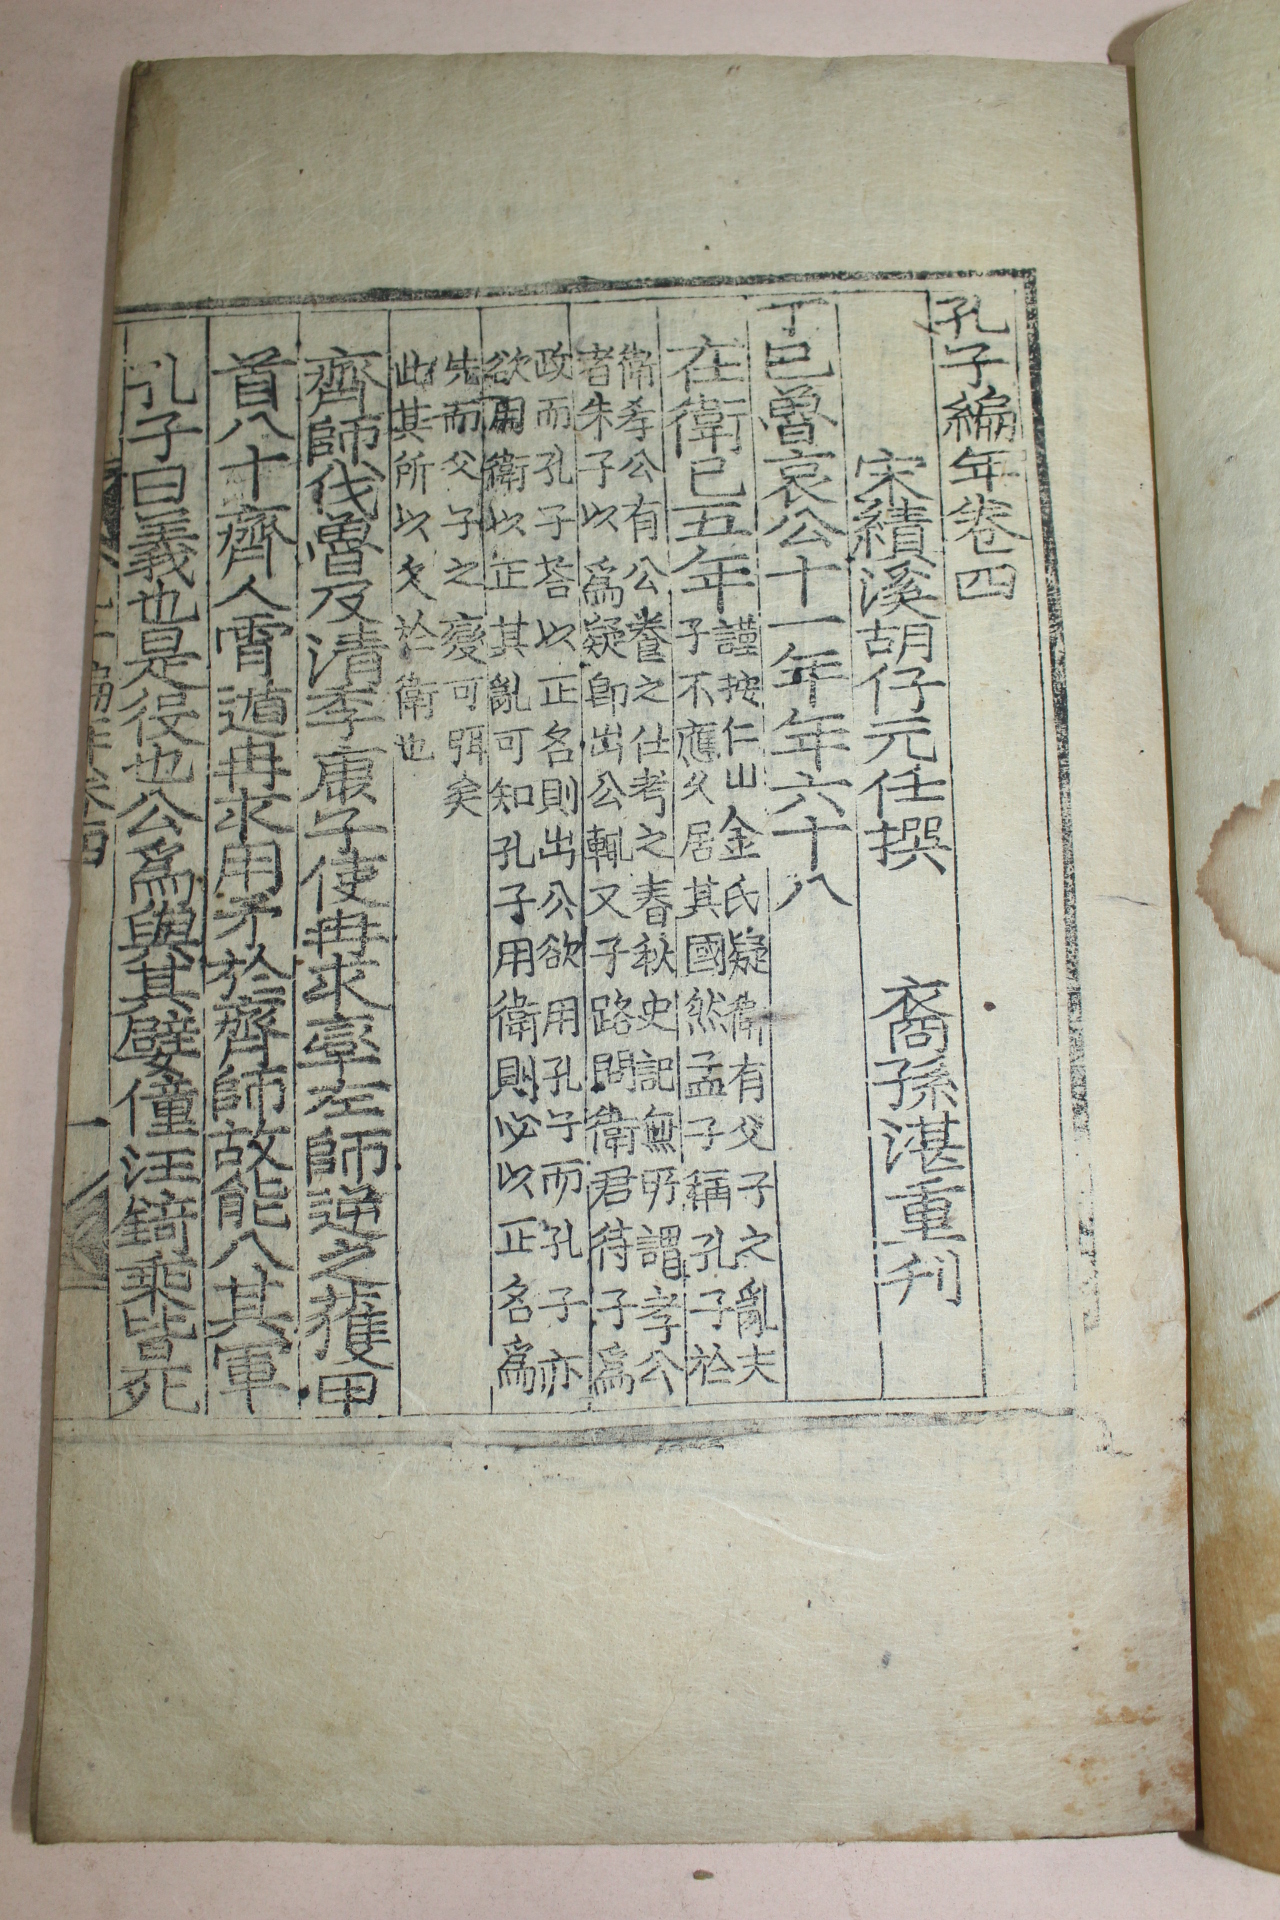 孔子編年卷四
宋績溪胡仔元任撰　裔孫湛重刊
丁巳魯哀公十一年年六十八
在衛已五年
謹按仁山金氏疑衛有父子之亂夫
子不應久居其國然孟子稱孔子於
衛孝公有公養之仕考之春秋史記無所謂孝公
者朱子以爲疑卽出公輒又子路問衛君待子爲
政而孔子荅以正名則出公欲用孔子而孔子亦
欲用衛以正其亂可知孔子用衛則必以正名爲
先而父子之變可弭矣
此其所以久於衛也
齊師伐魯及清季康子使冉求率左師逆之獲甲
首八十齊人宵遁冉求用矛於齊師故能入其軍
孔子曰義也是役也公爲與其嬖僮汪錡乘皆死
孔子編年卷四
一